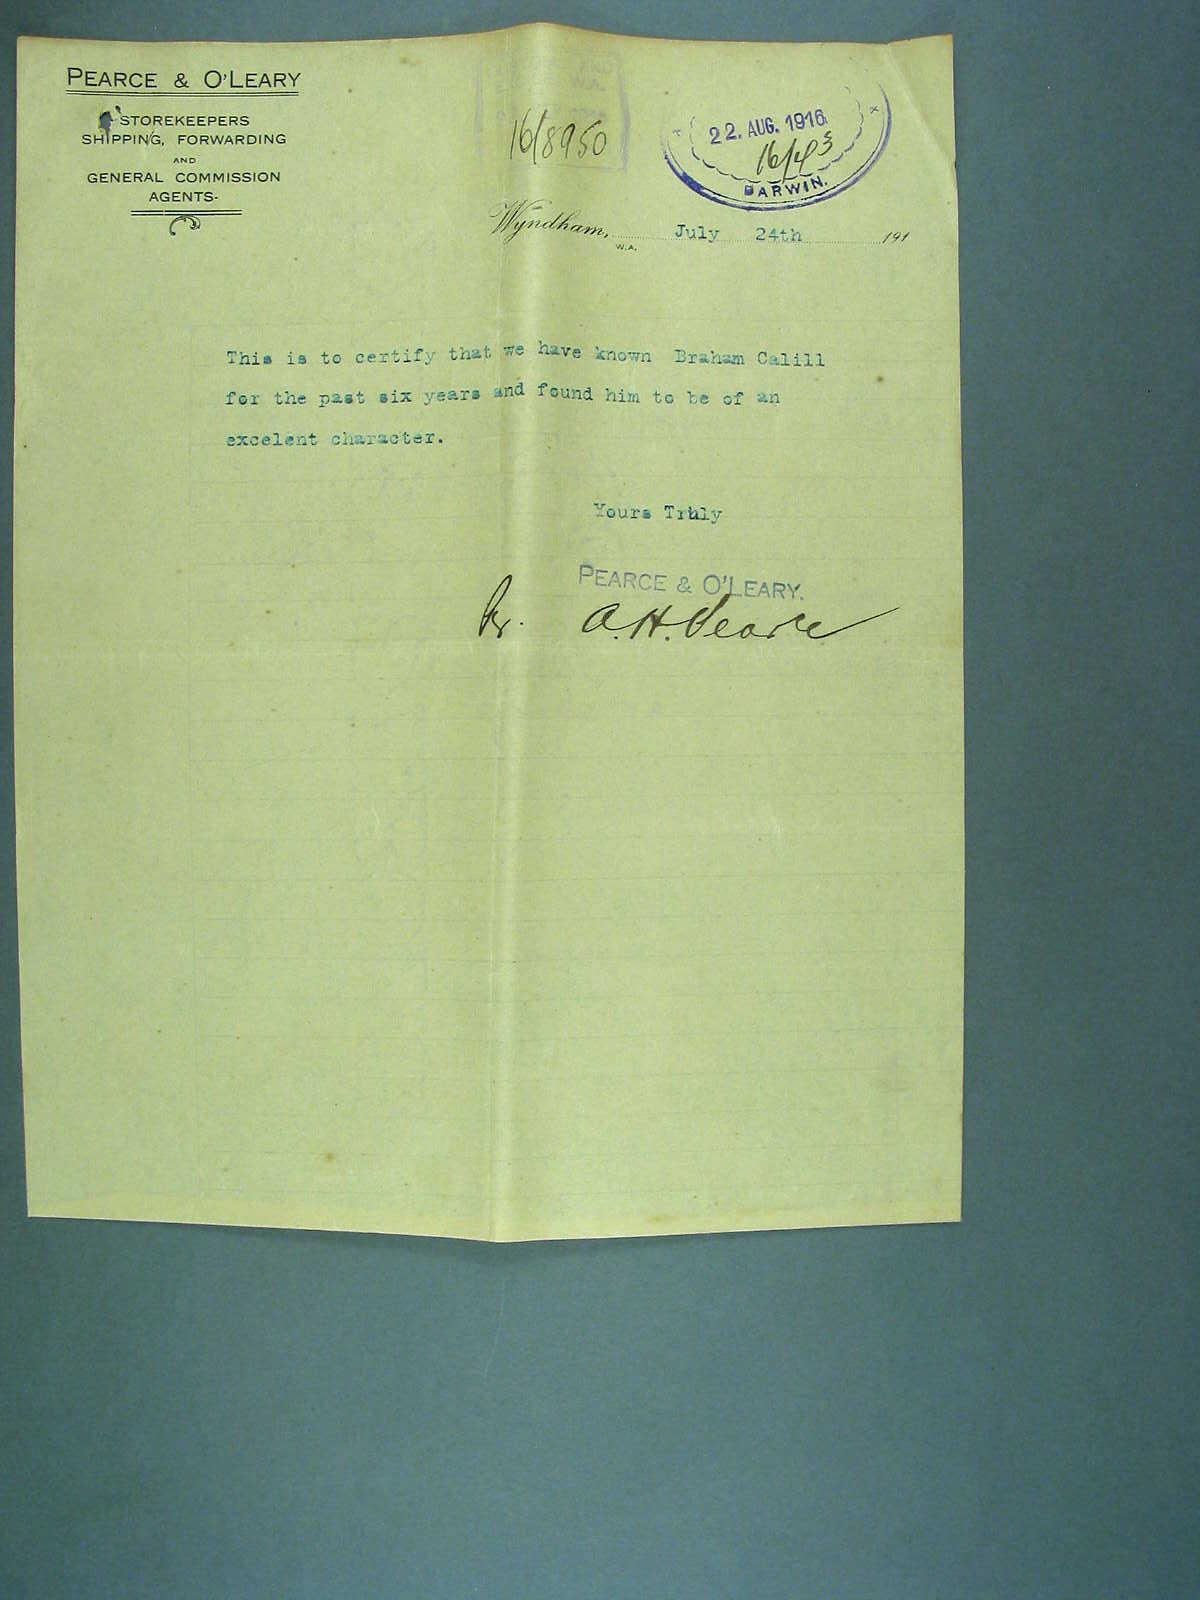 PEARCE & O'LEARY
STOREKEEPERS
SHIPPING, FORWARDING
AND
GENERAL COMMISSION
AGENTS-
16/8950
22. AUG. 1916
DARWIN.
Wyndham, July 24th 191
W.A.
This is to certify that we have known Braham Calill
for the past six years and found him to be of an
excelent character.
Yours Truly
PEARCE & O'LEARY.
Pr. A.H. Pearce